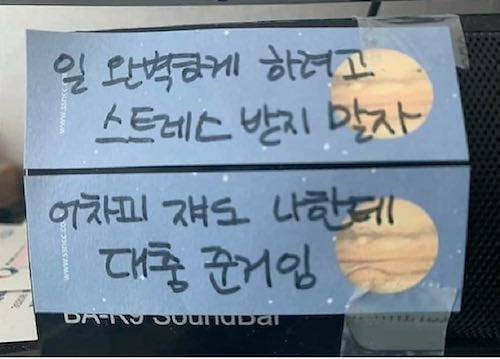 일 완벽하게 하려고
스트레스 받지 말자
www.ssncc.com
어차피 쟤도 나한테
대충 준거임
www.ssncc.co
BA-R9 SoundBar